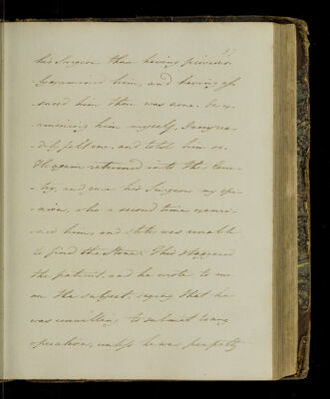 27
his Surgeon then having previous-
-ly examined him, and having as-
sured him there was none. In ex-
amining him myself, I very rea-
dily felt one, and told him so.
He again returned into the Coun-
try, and gave his Surgeon my opi-
nion, who a second time exami-
ned him, and still was unable
to find the Stone. This staggered
the patient and he wrote to me
on the subject, saying that he
was unwilling to submit to any
operation, unless he was perfectly